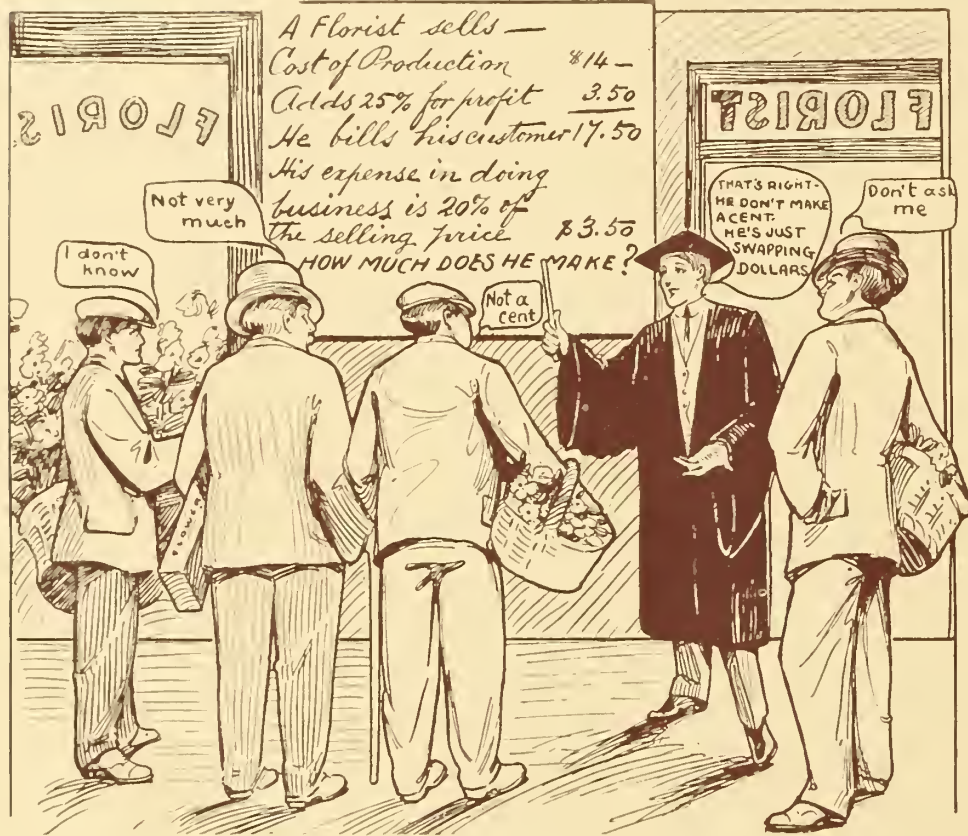 A Florist sells —
Cost of Production $14 —
Adds 25% for profit 3.50
He bills his customer 17.50
His expense in doing
business is 20% of
the selling price $3.50
HOW MUCH DOES HE MAKE?
FLORIST
FLORIST
I don't
know
Not very
much
Not a
cent
THAT'S RIGHT-
HE DON'T MAKE
A CENT.
HE'S JUST
SWAPPING
DOLLARS
Don't ask
me
FLOWERS